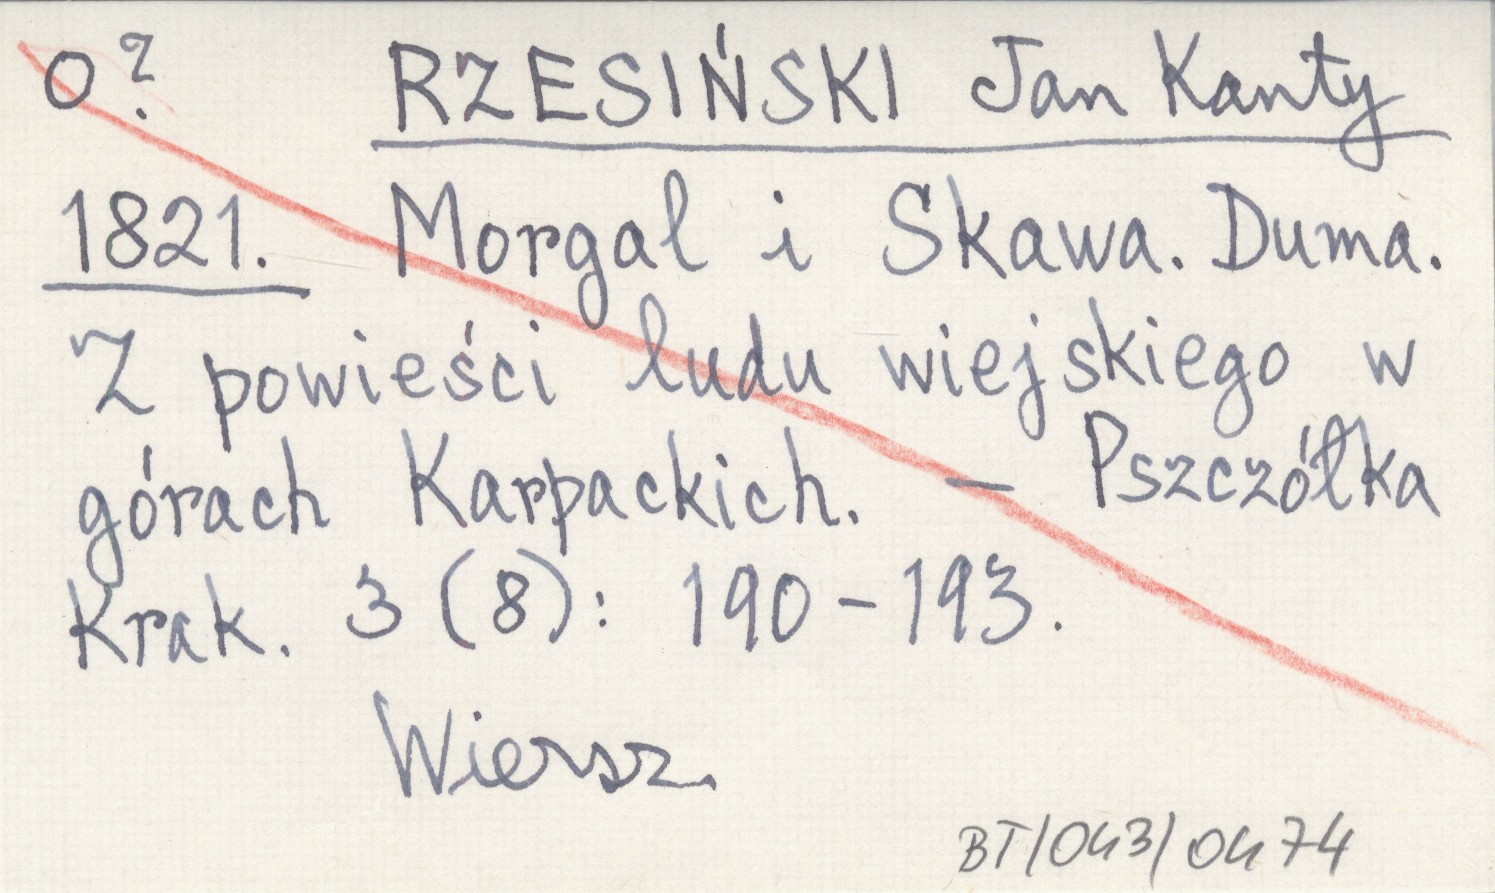 O? RZESIŃSKI Jan Kanty
1821. Morgal i Skawa. Duma.
Z powieści ludu wiejskiego w
górach Karpackich. — Pszczółka
Krak. 3 (8): 190-193.
Wiersz.
BT/043/0474